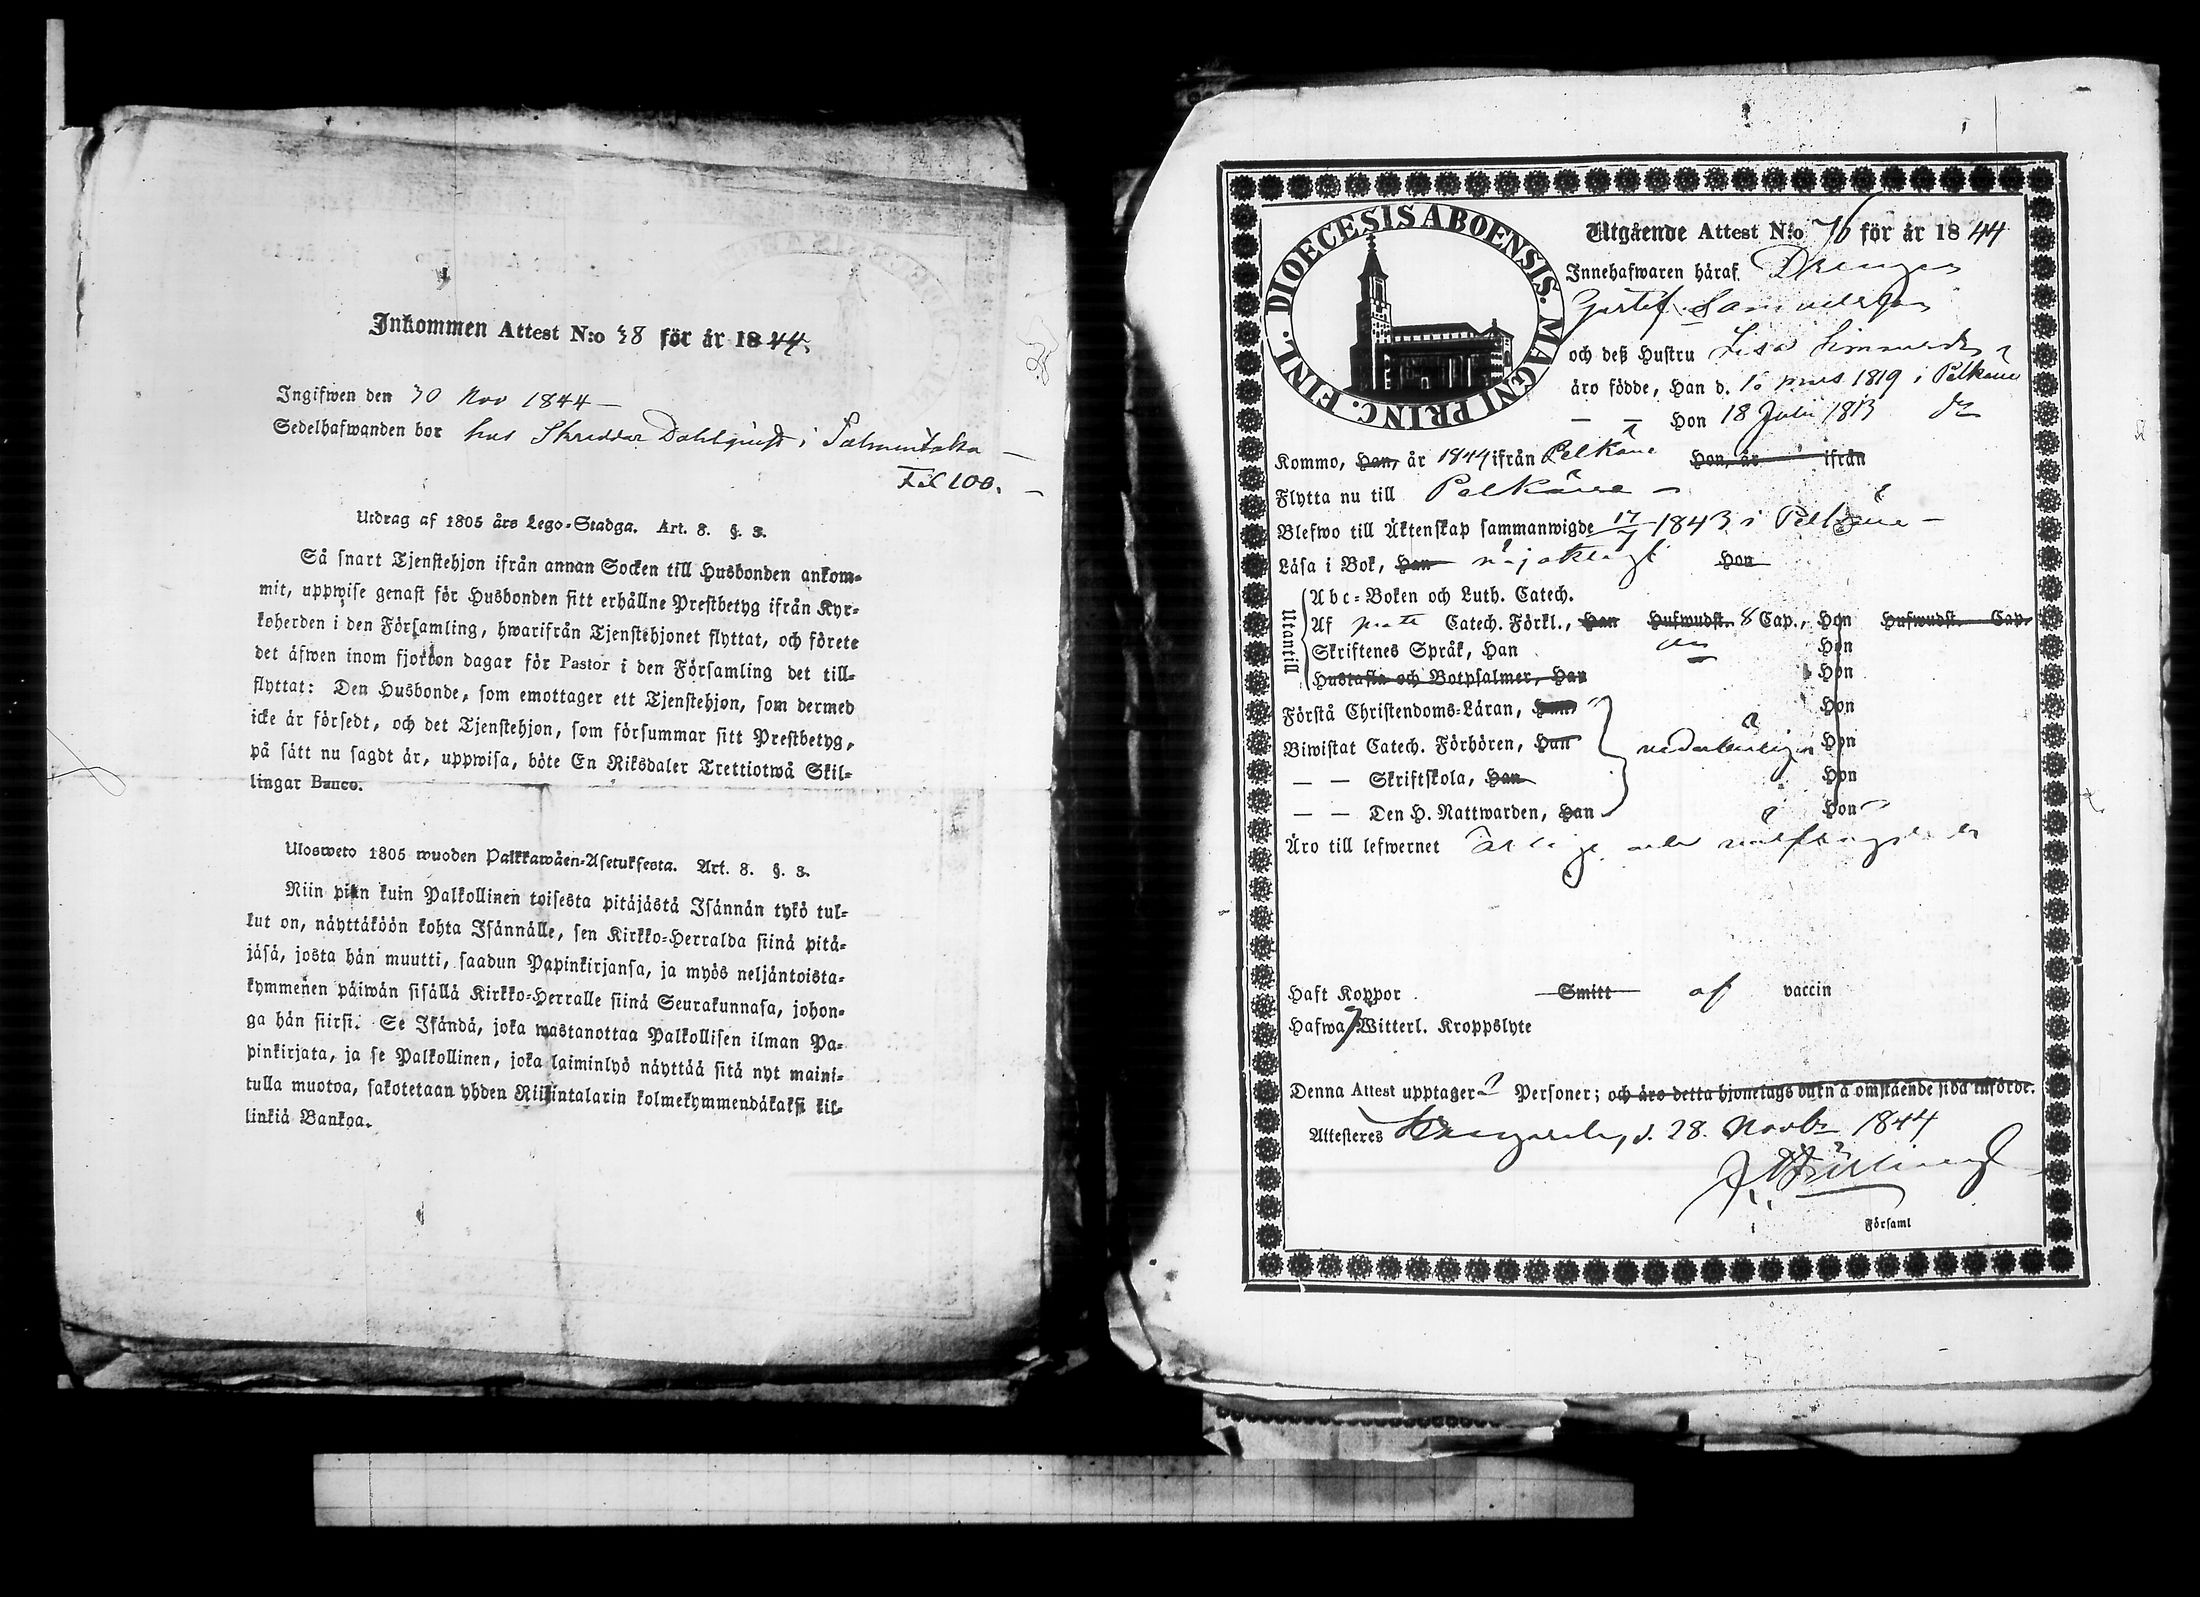 Inkommen Attest N:o 38 för år 1844.
Ingifwen den 30 Nov 1844
Sedelhafwanden bor hos Skreddar Dahlquist i Salmentaka
Fol 100.
Utdrag af 1805 års Lego-Stadga. Art. 8. §. 3.
Så snart Tjenstehjon ifrån annan Socken till Husbonden ankom-
mit, uppwise genast för Husbonden sitt erhållne Prestbetyg ifrån Kyr-
koherden i den Församling, hwarifrån Tjenstehjonet flyttat, och förete
det äfwen inom fjorton dagar för Pastor i den Församling det till-
flyttat: Den Husbonde, som emottager ett Tjenstehjon, som dermed
icke är försedt, och det Tjenstehjon, som försummar sitt Prestbetyg,
på sätt nu sagdt är, uppwisa, böte En Riksdaler Trettiotwå Skil-
lingar Banco.
Ulosweto 1805 wuoden Palkkawäen-Asetuksesta. Art. 8. §. 3.
Niin pian kuin Palkollinen toisesta pitäjästä Isännän tykö tul-
lut on, näyttäköön kohta Isännälle, sen Kirkko-Herralda siinä pitä-
jäsä, josta hän muutti, saadun Papinkirjansa, ja myös neljäntoista-
kymmenen päiwän sisällä Kirkko-Herralle siinä Seurakunnasa, johon-
ga hän siirsi. Se Isändä, joka wastanottaa Palkollisen ilman Pa-
pinkirjata, ja se Palkollinen, joka laiminlyö näyttää sitä nyt maini-
tulla muotoa, sakotetaan yhden Riikintalarin kolmekymmendäkaksi kil-
linkiä Bankoa.
DIOECESIS ABOENSIS. MAGNI PRINC. FINL.
Utgående Attest N:o 76 för år 1844
Innehafwaren häraf Drengen
Gustaf Samuelsson
och deß Hustru Lisa Simonsdr
äro födde, Han d. 10 mars 1819 i Pelkäne
— — Hon 18 Julii 1813 do
Kommo, Han, år 1844 ifrån Pelkäne Hon, år ifrån
Flytta nu till Pelkäne
Blefwo till Äktenskap sammanwigde 17/7 1843 i Pelkäne
Läsa i Bok, Han nöjaktigt Hon
Utantill
Abc-Boken och Luth. Catech.
Af Catech. Förkl., Han Hufwudst. 8 Cap., Hon Hufwudst. Cap.
Skriftenes Språk, Han Hon
Hustafla och Botpsalmer, Han Hon
Förstå Christendoms-Läran, Han Hon
Biwistat Catech. Förhören, Han Hon
— — Skriftskola, Han Hon
— — Den H. Nattwarden, Han Hon
Äro till lefwernet ärlige och
Haft Koppor Smitt af vaccin
Hafwa Witterl. Kroppslyte
Denna Attest upptager 2 Personer; och äro detta hjonelags barn å omstående sida införde.
Attesteres Kangasala, d. 28. Novbr 1844
i Församl